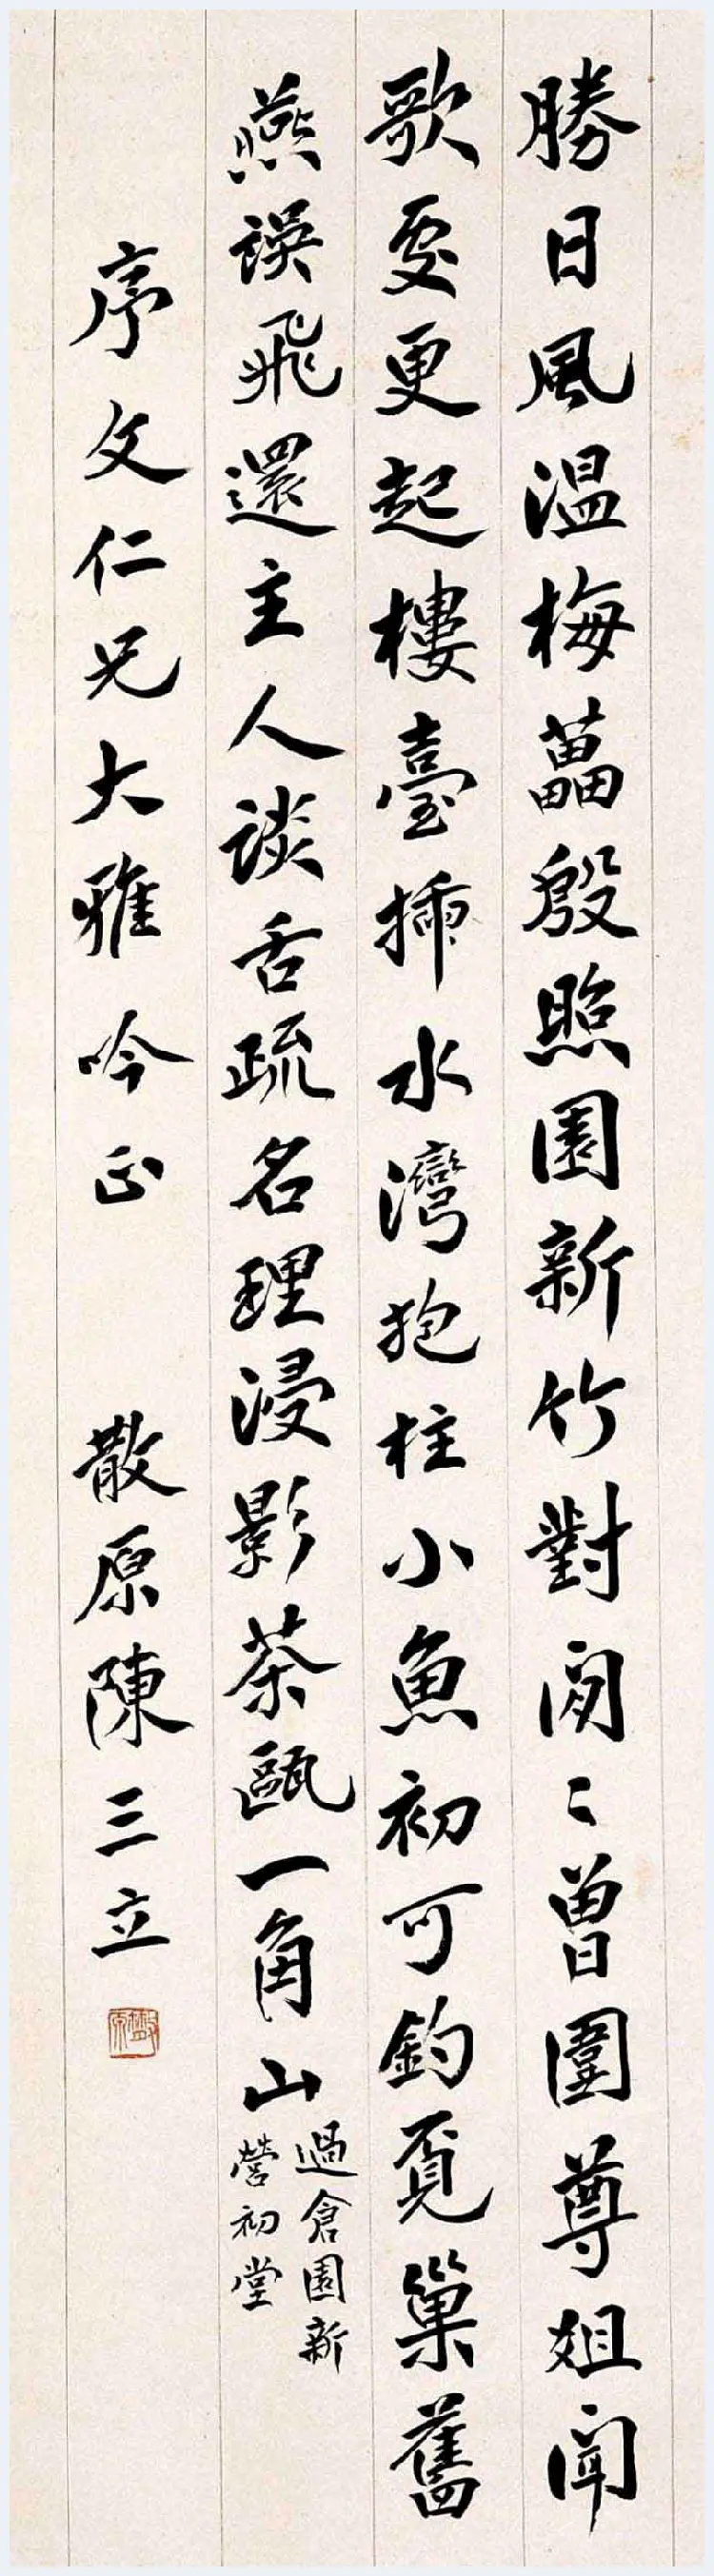 勝日風温梅藟殷照園新竹對閒〻曾圍尊姐聞
歌處更起樓臺插水灣抱柱小魚初可釣覓巢舊
燕誤飛還主人談舌疏名理浸影茶甌一角山
過倉園新
營初堂
序文仁兄大雅吟正 散原陳三立
散原